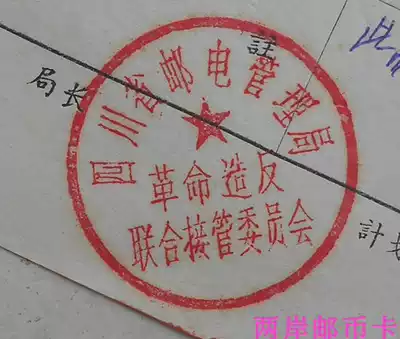 註
此
局长
四川省邮电管理局
革命造反
联合接管委员会
計划
两岸邮币卡